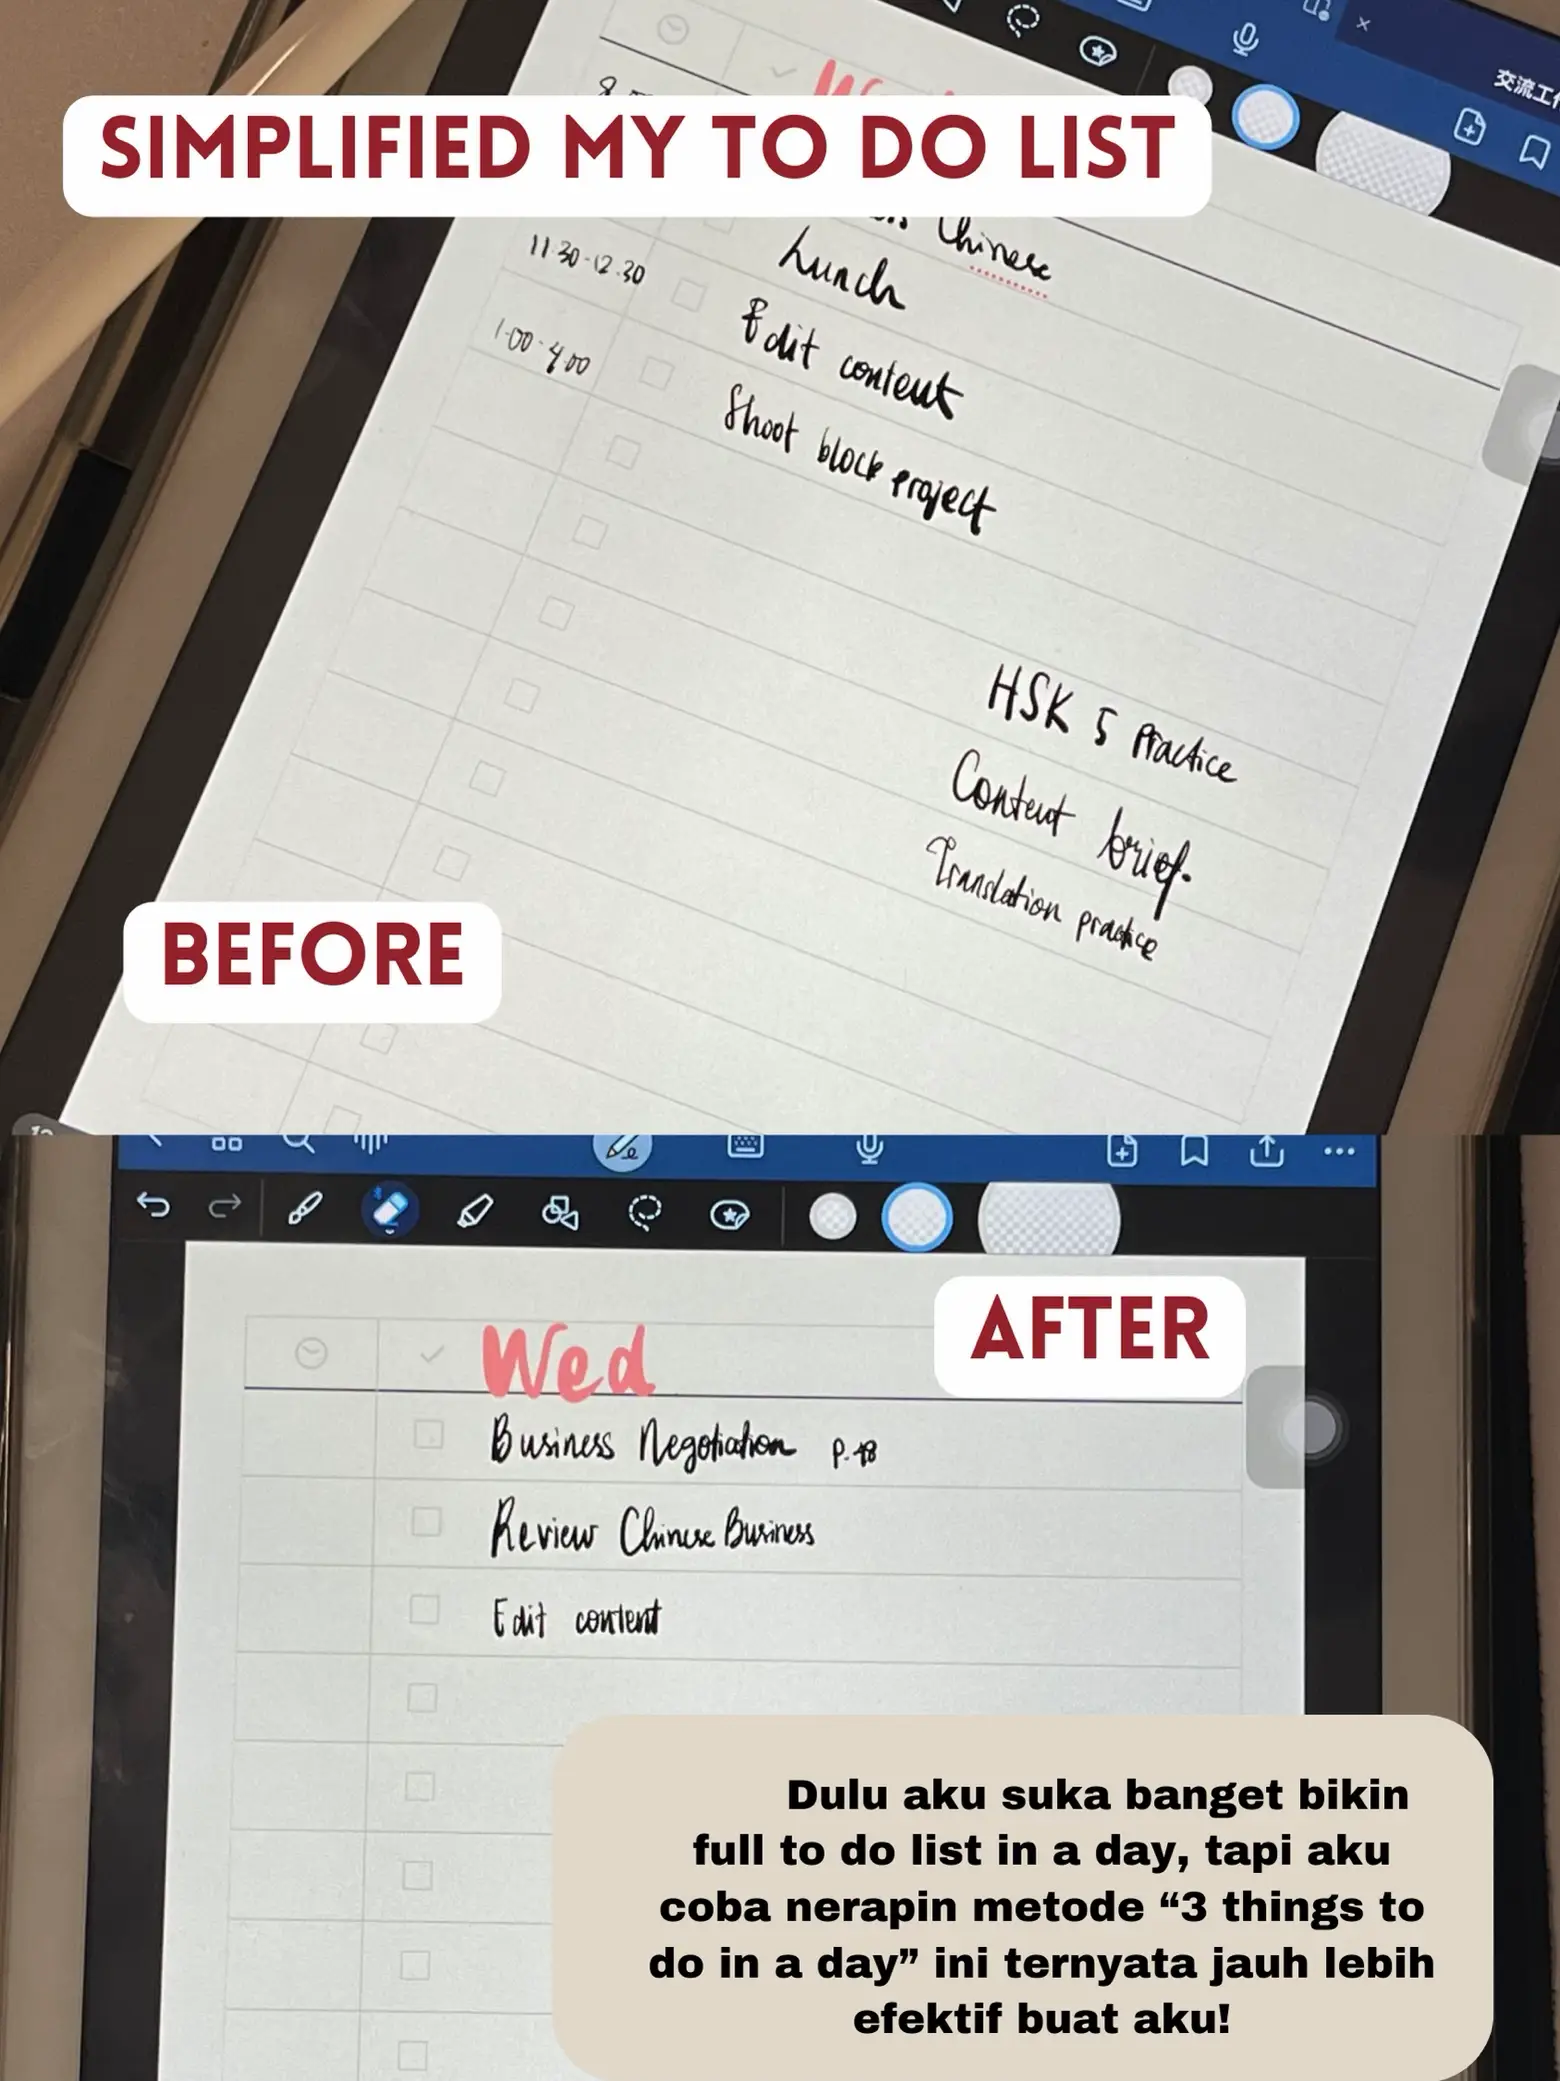 交流工作
SIMPLIFIED MY TO DO LIST
Chinese
Lunch
11.30-12.30
Edit content
1.00-4.00
Shoot block project
HSK 5 Practice
Content brief.
Translation practice
BEFORE
AFTER
Wed
Business Negotiation
Review Chinese Business
Edit content
Dulu aku suka banget bikin
full to do list in a day, tapi aku
coba nerapin metode “3 things to
do in a day” ini ternyata jauh lebih
efektif buat aku!